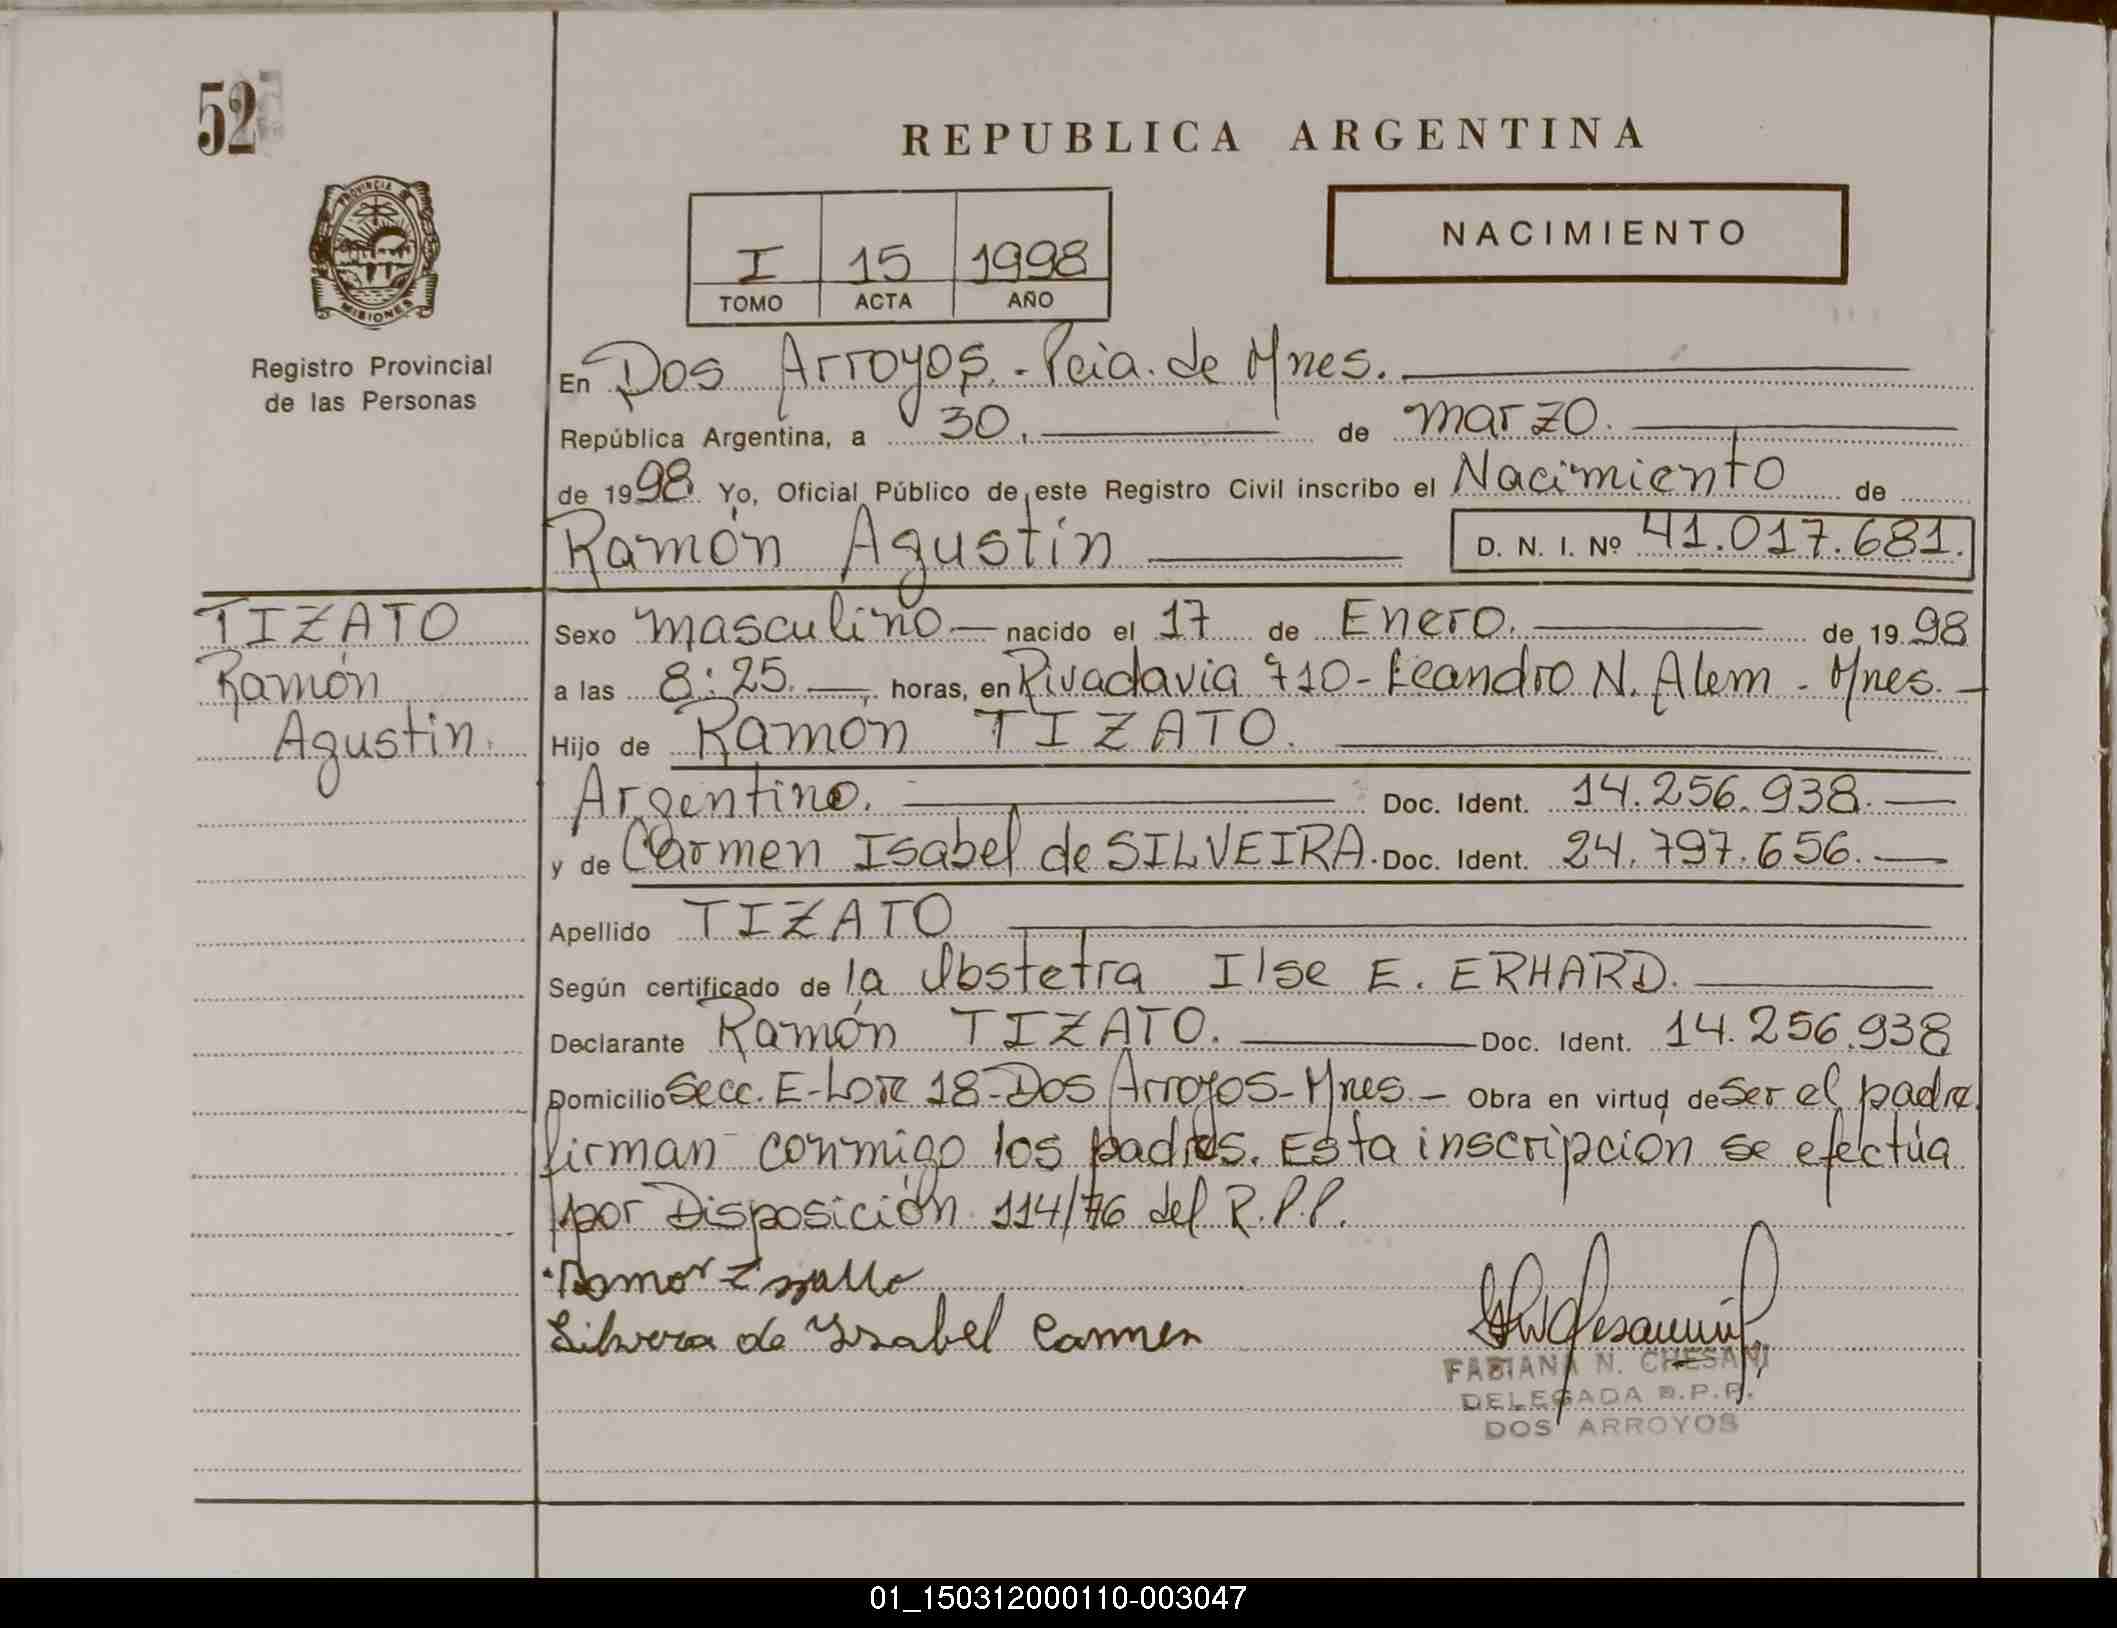 52
REPUBLICA ARGENTINA
PROVINCIA DE
MISIONES
Registro Provincial
de las Personas
I 15 1998
TOMO ACTA AÑO
NACIMIENTO
En Dos Arroyos.- Pcia. de Mnes.
República Argentina, a 30. de marzo.
de 1998 Yo, Oficial Público de este Registro Civil inscribo el Nacimiento de
Ramón Agustín D. N. I. Nº 41.017.681.
TIZATO
Ramón
Agustín.
Sexo masculino nacido el 17 de Enero. de 1998
a las 8:25. horas, en Rivadavia 710 - Leandro N. Alem - Mnes.
Hijo de Ramón TIZATO.
Argentino. Doc. Ident. 14.256.938.
y de Carmen Isabel de SILVEIRA. Doc. Ident. 24.797.656.
Apellido TIZATO
Según certificado de la Obstetra Ilse E. ERHARD.
Declarante Ramón TIZATO. Doc. Ident. 14.256.938
Domicilio Secc. E-Lote 18-Dos Arroyos-Mnes.- Obra en virtud de ser el padre
firman conmigo los padres. Esta inscripción se efectúa
por Disposición 114/76 del R.P.P.
Silvera de Ysabel Carmen
FABIANA N. CHESANI
DELEGADA R.P.P.
DOS ARROYOS
01_150312000110-003047